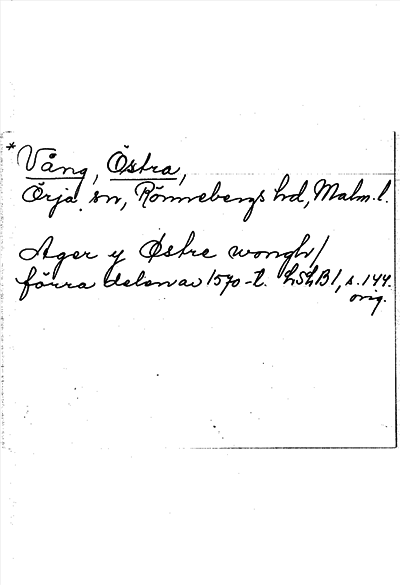 *Vång, Östra,
Örja sn, Rönnebergs hd, Malm. l.
Ager y Østre wongh/
förra delen av 1570-t. LSLB1, s. 144.
orig.